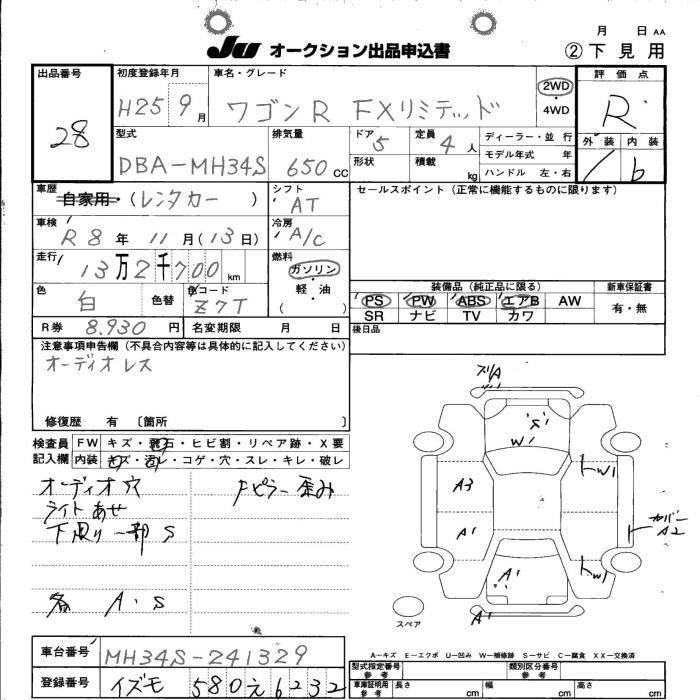 月 日 AA
JU オークション出品申込書
② 下見用
出品番号
28
初度登録年月
H25 9月
車名・グレード
ワゴンR FXリミテッド
2WD
・
4WD
評価点
R
型式
DBA-MH34S
排気量
650cc
ドア 5
定員 4人
形状
積載 kg
ディーラー・並行
モデル年式 年
ハンドル 左・右
外装 内装
b
車歴
自家用・(レンタカー)
シフト
AT
セールスポイント(正常に機能するものに限ります)
車検
R8年11月(13日)
冷房
A/C
走行
13万2千700km
燃料
ガソリン
・
軽油
( )
色
白
色替
色コード
Z7T
装備品(純正品に限る)
新車保証書
PS PW ABS エアB AW
SR ナビ TV カワ
有・無
R券 8,930円
名変期限 月 日
後日品
注意事項申告欄(不具合内容等は具体的に記入してください)
オーディオレス
修復歴 有〔箇所 〕
検査員記入欄
FW キズ・飛石・ヒビ割・リペア跡・X要
内装 キズ・汚レ・コゲ・穴・スレ・キレ・破レ
オーディオ穴
Fピラー歪み
ライトあせ
下廻り一部S
各 A.S
ズリA
S
W1
A3
W1
A1
カバー
A2
W1
A1
A1
スペア
車台番号
MH34S-241329
登録番号
イズモ 580 え 6232
A-キズ E-エクボ U-凹み W-補修跡 S-サビ C-腐食 XX-交換済
型式指定番号
参考
類別区分番号
参考
車庫証明用
参考
長さ cm
幅 cm
高さ cm